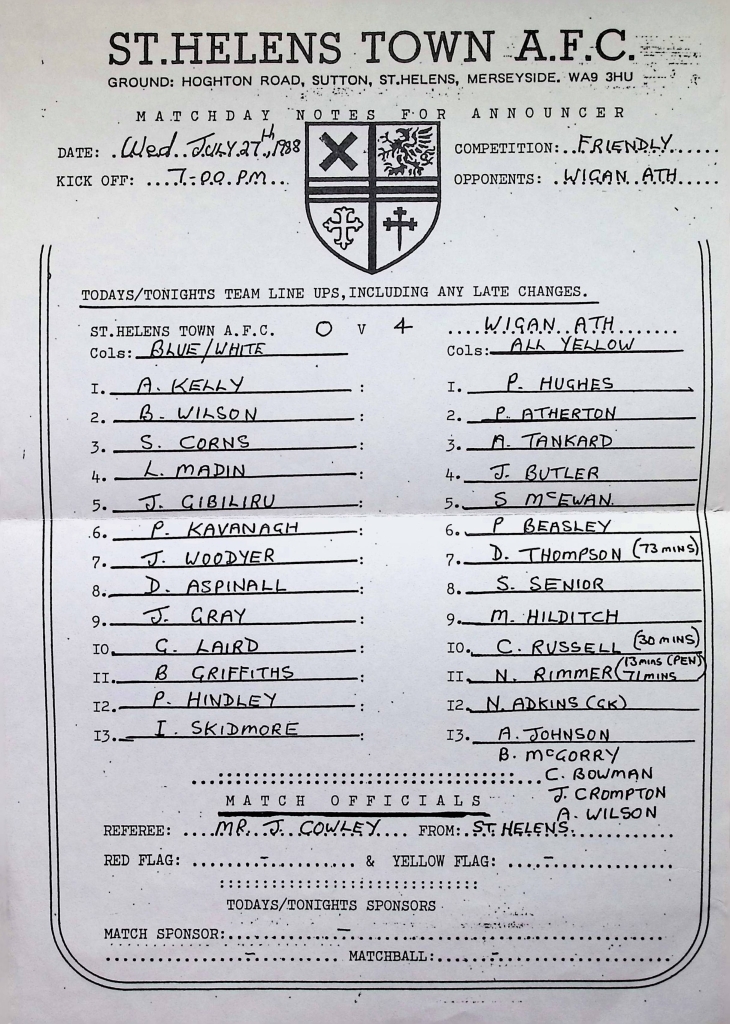 ST.HELENS TOWN A.F.C.
GROUND: HOGHTON ROAD, SUTTON, ST.HELENS, MERSEYSIDE. WA9 3HU
MATCHDAY NOTES FOR ANNOUNCER
DATE: Wed. JULY 27th, 1988 COMPETITION: FRIENDLY
KICK OFF: 7-00 P.M. OPPONENTS: WIGAN ATH
TODAYS/TONIGHTS TEAM LINE UPS,INCLUDING ANY LATE CHANGES.
ST.HELENS TOWN A.F.C. 0 V 4 WIGAN ATH
Cols: BLUE/WHITE Cols: ALL YELLOW
1. A. KELLY : 1. P. HUGHES
2. B. WILSON : 2. P. ATHERTON
3. S. CORNS : 3. A. TANKARD
4. L. MADIN : 4. J. BUTLER
5. J. GIBILIRU : 5. S McEWAN
6. P. KAVANAGH : 6. P BEASLEY
7. J. WOODYER : 7. D. THOMPSON (73 MINS)
8. D. ASPINALL : 8. S. SENIOR
9. J. GRAY : 9. M. HILDITCH
10. G. LAIRD : 10. C. RUSSELL (30 MINS)
11. B GRIFFITHS : 11. N. RIMMER (13 MINS (PEN) 71 MINS
12. P. HINDLEY : 12. N. ADKINS (GK)
13. I. SKIDMORE : 13. A. JOHNSON
B. McGORRY
C. BOWMAN
J. CROMPTON
A. WILSON
MATCH OFFICIALS
REFEREE: MR. J. COWLEY FROM: ST. HELENS.
RED FLAG: - & YELLOW FLAG: -
TODAYS/TONIGHTS SPONSORS
MATCH SPONSOR: -
- MATCHBALL: -